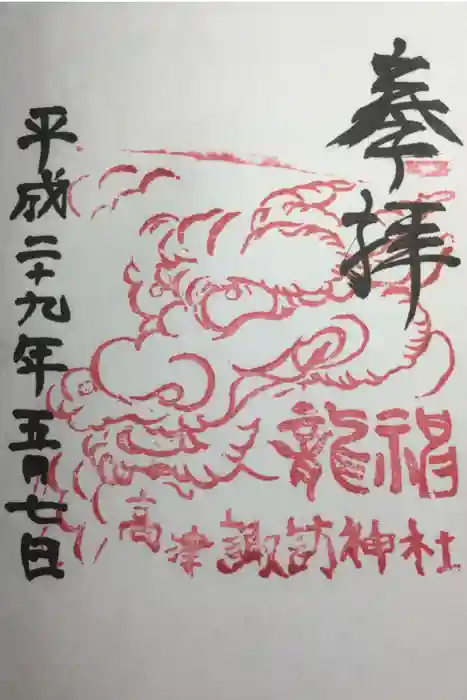 奉拝
龍
高津諏訪神社
平成二十九年五月七日